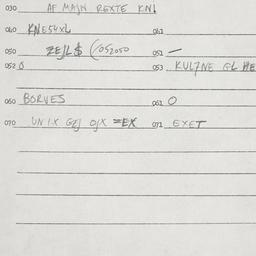 030 AF MAJN REXTE KNI
040 KNE54XL 041
050 ZEJL$ (/052050 051 —
052 0 053 KULZNE GL HE
060 BORVES 061 O
070 UN 1.X GZJ OJX =EX 071 EXET